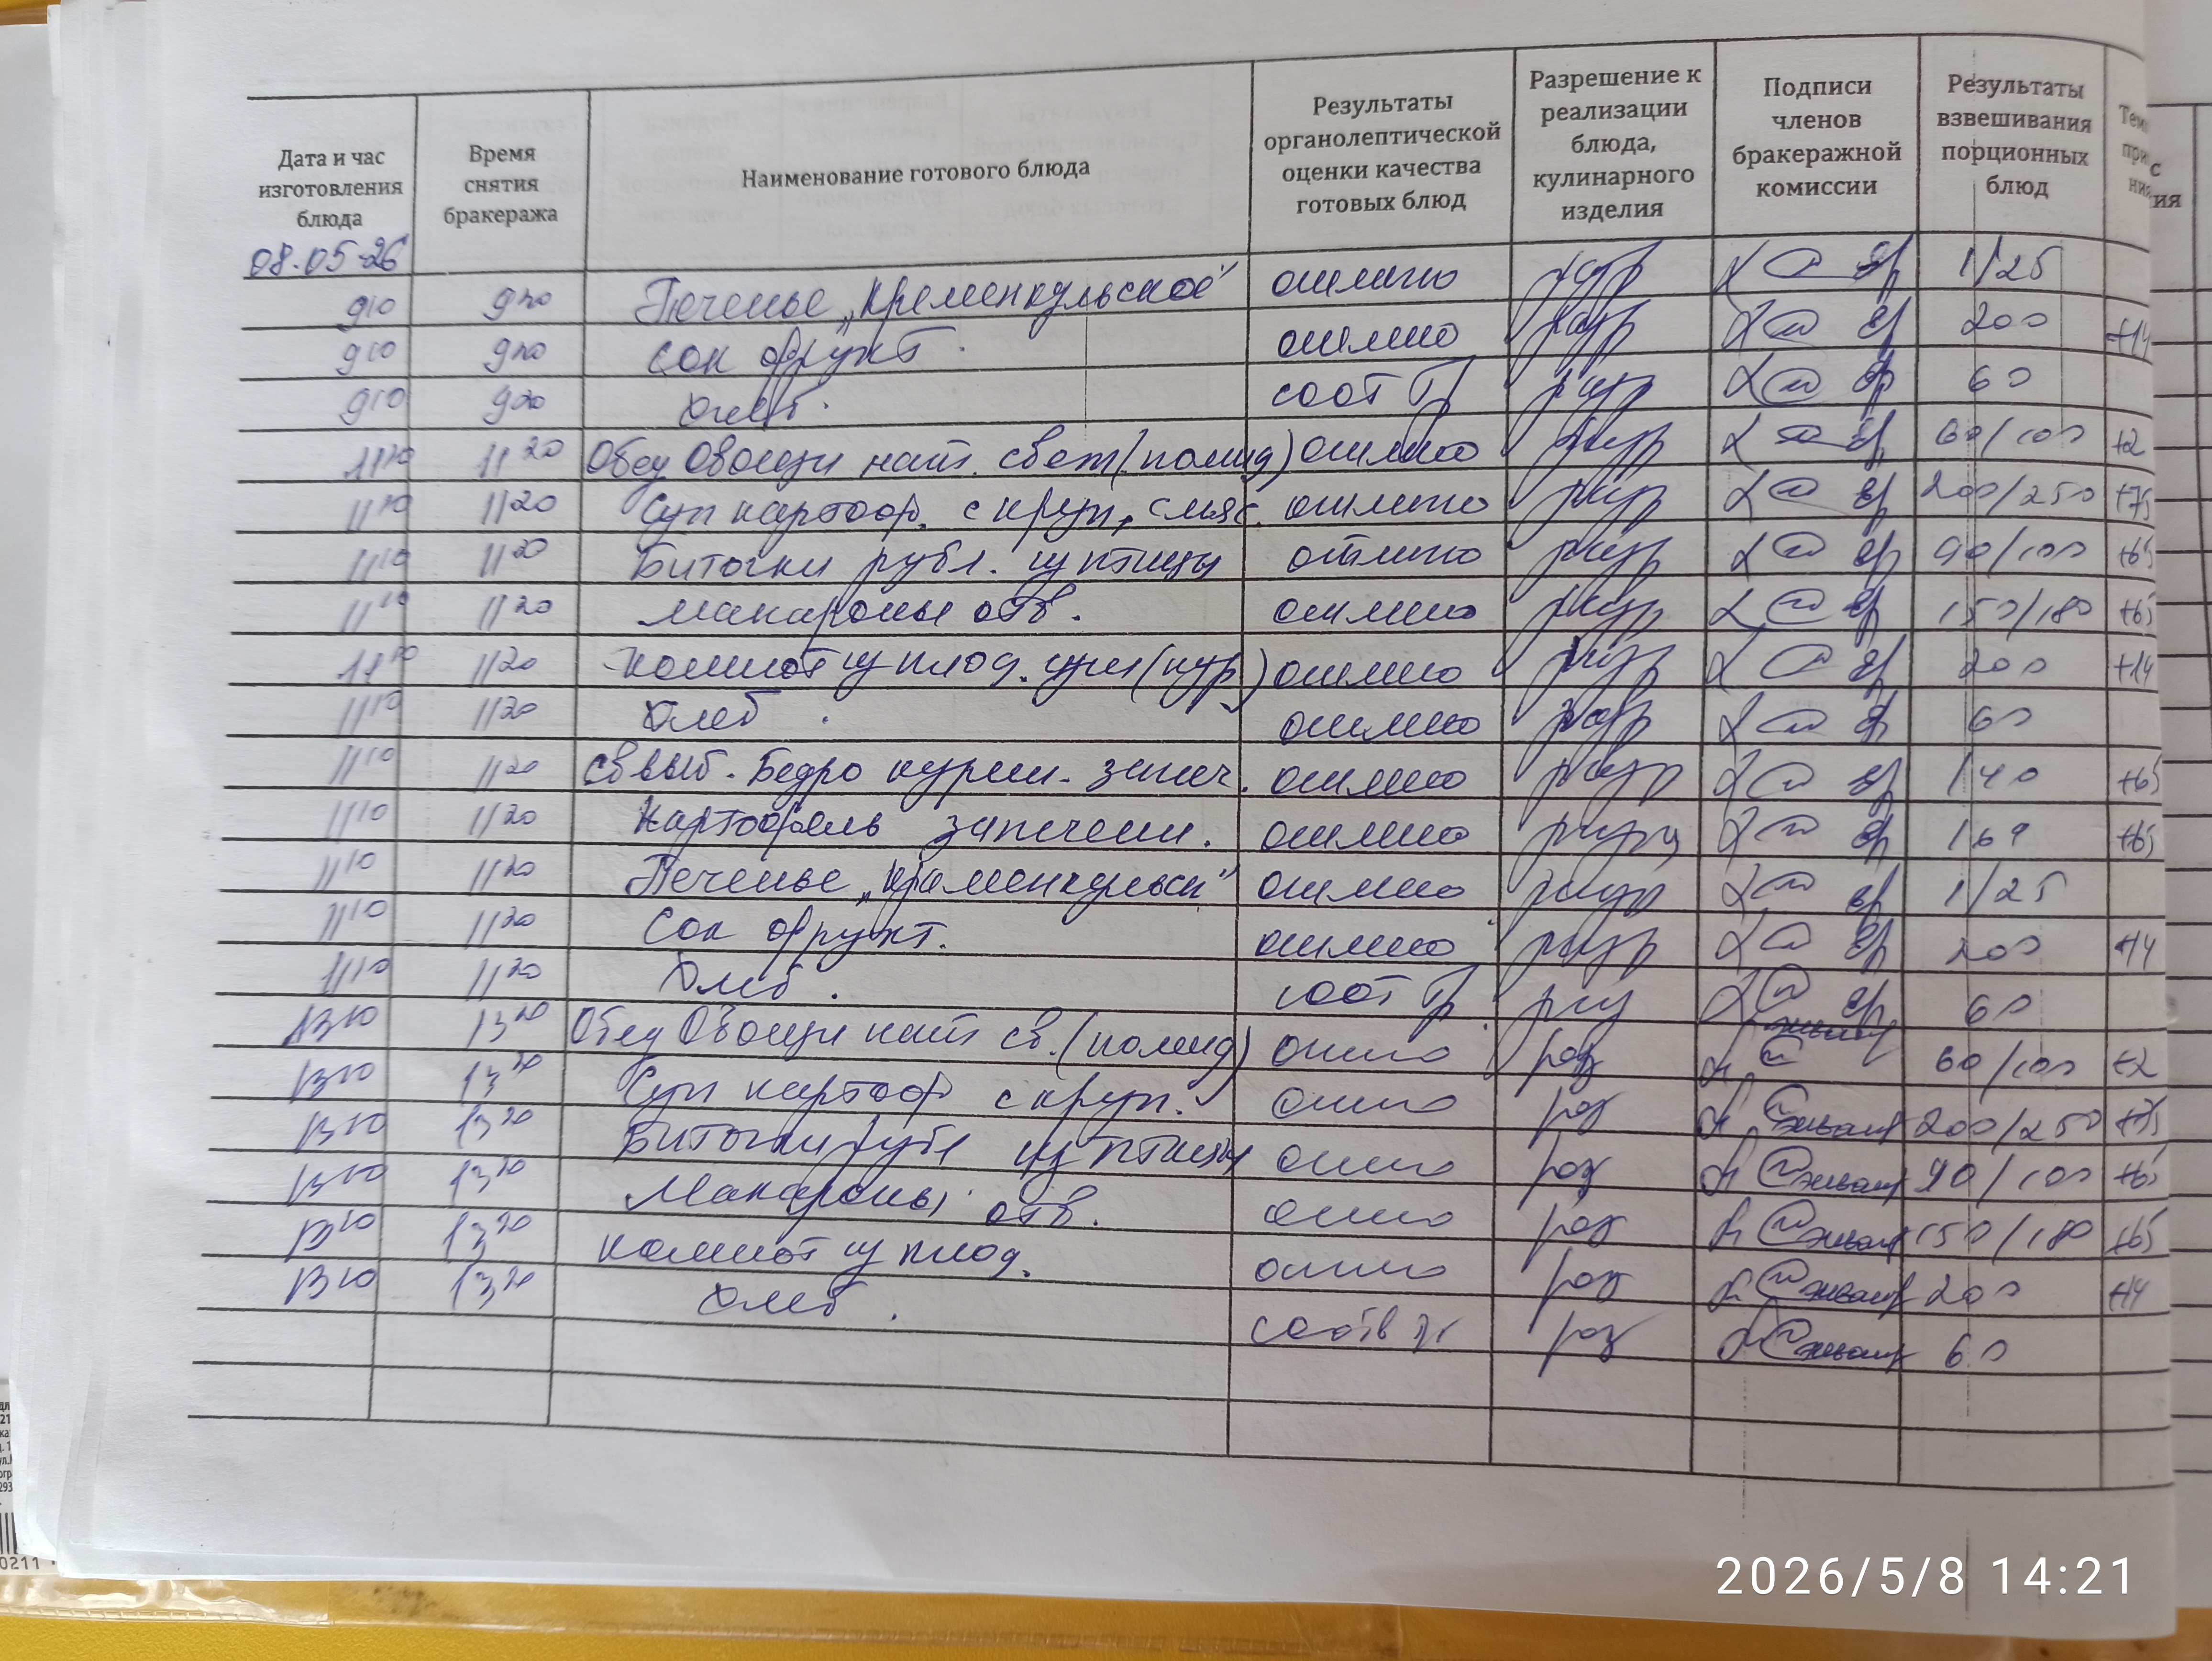 Дата и час изготовления блюда | Время снятия бракеража | Наименование готового блюда | Результаты органолептической оценки качества готовых блюд | Разрешение к реализации блюда, кулинарного изделия | Подписи членов бракеражной комиссии | Результаты взвешивания порционных блюд
08.05.26
9 10 | 9 20 | Печенье „Кременкульское" | отлично | разр | 1/25
9 10 | 9 20 | Сок фрукт. | отлично | разр | 200 | +14
9 10 | 9 20 | Хлеб. | соот тр | разр | 60
11 10 | 11 20 | Обед Овощи нат. свеж (помид) | отлично | разр | 60/100 | +2
11 10 | 11 20 | Суп картоф. с круп, с мяс. | отлично | разр | 200/250 | +75
11 10 | 11 20 | Биточки рубл. из птицы | отлично | разр | 90/100 | +65
11 10 | 11 20 | Макароны отв. | отлично | разр | 150/180 | +65
11 10 | 11 20 | Компот из плод. | отлично | разр | 200 | +14
11 10 | 11 20 | Хлеб. | отлично | разр | 60
11 10 | 11 20 | Св выб. Бедро курин. запеч. | отлично | разр | 140 | +65
11 10 | 11 20 | Картофель запечен. | отлично | разр | +65
11 10 | 11 20 | Печенье „Кременкульск" | отлично | разр | 1/25
11 10 | 11 20 | Сок фрукт. | отлично | разр | 200 | +14
11 10 | 11 20 | Хлеб. | соот тр. | раз | 60
13 10 | 13 20 | Обед Овощи нат св. (помид) | отлично | раз | 60/100 | +2
13 10 | 13 20 | Суп картоф с круп. | отлично | раз | 200/250 | +75
13 10 | 13 20 | Биточки рубл из птицы | отлично | раз | 90/100 | +65
13 10 | 13 20 | Макароны отв. | отлично | раз | 150/180 | +65
13 10 | 13 20 | Компот из плод. | отлично | раз | 200 | +14
13 10 | 13 20 | Хлеб. | соотв | раз | 60
0211
2026/5/8 14:21